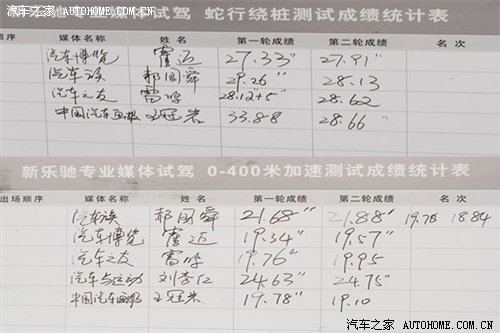 汽车之家 AUTOHOME.COM.CN
媒体试驾 蛇行绕桩测试成绩统计表
顺序 媒体名称 姓名 第一轮成绩 第二轮成绩 名次
汽车博览 霍迈 27.33" 27.91"
汽车族 郝国舜 29.26" 28.13
汽车之友 雷鸣 28.12+5" 28.62
中国汽车画报 王冠岩 33.88 28.66 "
新乐驰专业媒体试驾 0-400米加速测试成绩统计表
出场顺序 媒体名称 姓名 第一轮成绩 第二轮成绩 名次
汽车族 郝国舜 21.68" 21.88" 19.78 18.84
汽车博览 霍迈 19.34" 19.57"
汽车之友 雷鸣 19.76" 19.95
汽车与运动 24.63" 24.75"
中国汽车画报 王冠岩 19.78" 19.10
汽车之家 AUTOHOME.COM.CN